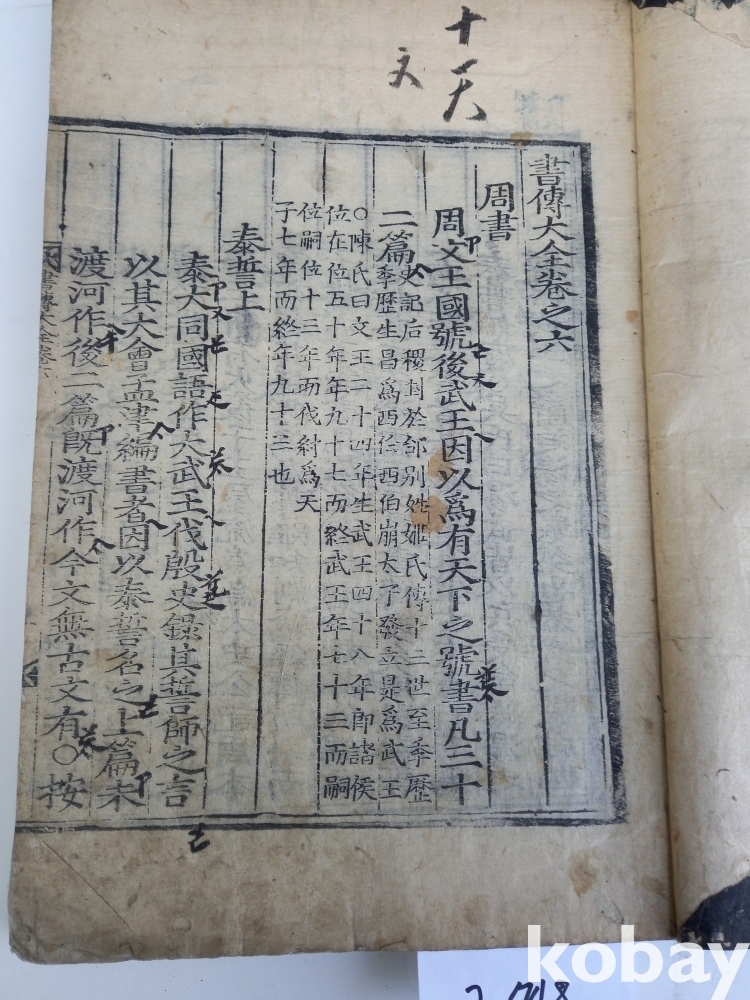 十一天
文
書傳大全卷之六
周書
周文王國號後武王因以爲有天下之號書凡三十
二篇
史記后稷封於邰别姓姬氏傳十三世至季歷
季歷生昌爲西伯西伯崩太子發立是爲武王
○陳氏曰文王二十四年生武王四十八年即諸侯
位在位五十年年九十七而終武王年七十三而嗣
位嗣位十三年而伐紂爲天
子七年而終年九十三也
泰誓上
泰大同國語作大武王伐殷史錄其誓師之言
以其大會孟津編書者因以泰誓名之上篇未
渡河作後二篇旣渡河作今文無古文有○按
書傳大全卷六
kobay